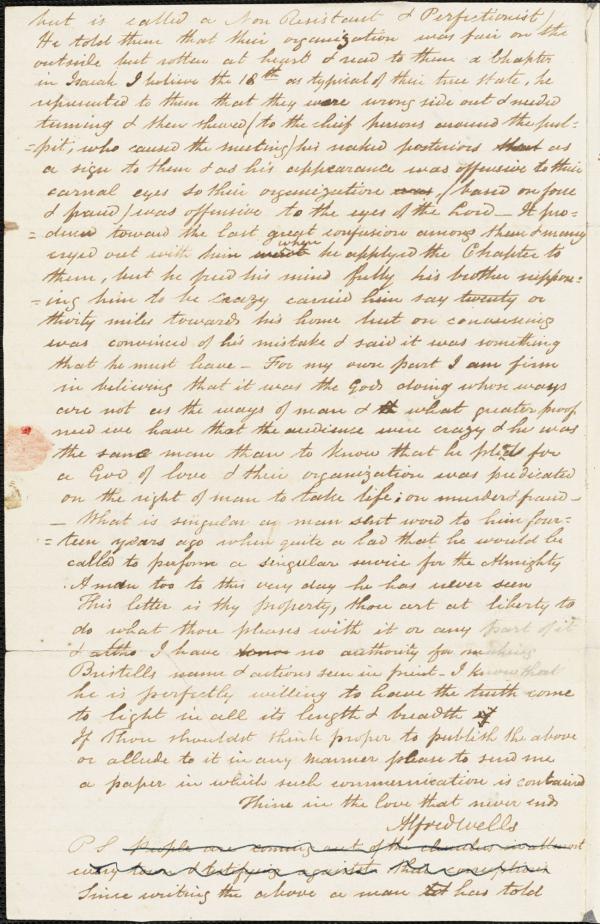 but is called a Non Resistant & Perfectionist/
He told them that their organization was fair on the
outside but rotten at heart & read to them a Chapter
in Isaiah I believe the 18th as typical of their true state, he
represented to them that they were wrong side out & needed
turning & then shewed (to the chief persons around the pul-
=pit, who caused the meeting) his naked posteriors that as
a sign to them & as his appearance was offensive to their
carnal eyes so their organization was, (based on force
& fraud) was offensive to the eyes of the Lord_ It pro-
=duced toward the last great confusion among them & many
cryed out with him when he applyed the Chapter to
them, but he freed his mind fully his brother suppos-
=ing him to be Crazy carried him say twenty or
thirty miles towards his home but on conversing
was convinced of his mistake & said it was something
that he must leave_ For my own part I am firm
in believing that it was the Gods doing whose ways
are not as the ways of man & th what greater proof
need we have that the audience were crazy & he was
the sane man than to know that he pled for
a God of love & their organization was predicated
on the right of man to take life; on murder & fraud_
_ What is singular a man sent word to him four=
=teen years ago when quite a lad that he would be
called to perform a singular service for the Almighty
A man too to this very day he has never seen
This letter is thy property, thou art at liberty to
do what thou pleases with it or any part of it
& altho I have no authority for making
Bristells name & actions seen in print_ I know that
he is perfectly willing to have the truth come
to light in all its length & breadth
If Thou shouldst think proper to publish the above
or allude to it in any manner please to send me
a paper in which such communication is contained
Thine in the love that never ends
Alfred Wells
P S People are coming out of the churches in almost
every town & testifying against that corruption
Since writing the above a man has told